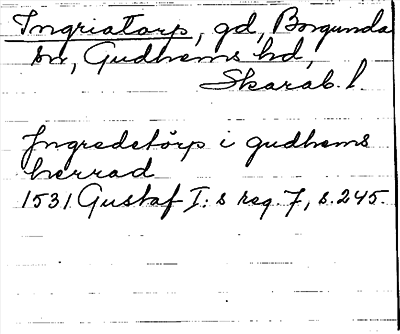 Ingriatorp, gd, Borgunda
sn, Gudhems hd,
Skarab. l.
Jngredetorp i gudhems
herrad
1531 Gustaf I: s reg. 7, s. 245.